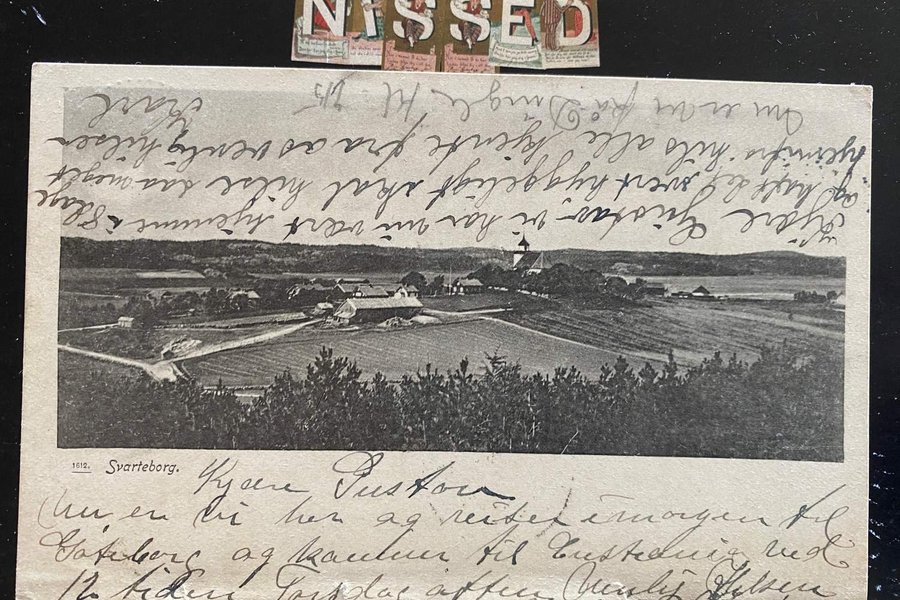 NISSED
Kjære Gustav, vi har nu vært hjemme i 8 dage
og haft det svert hyggeligt skal hilse saa meget
hjemifra hils alle kjente fra os venlig hilsen
Karl
Nu er vi på Dingle kl.
1612. Svarteborg.
Kjære Gustav
Nu er vi her og reiser imorgen til
Gøteborg og kommer til Cristiania ved
12 tiden Torsdag aften Venlig Hilsen